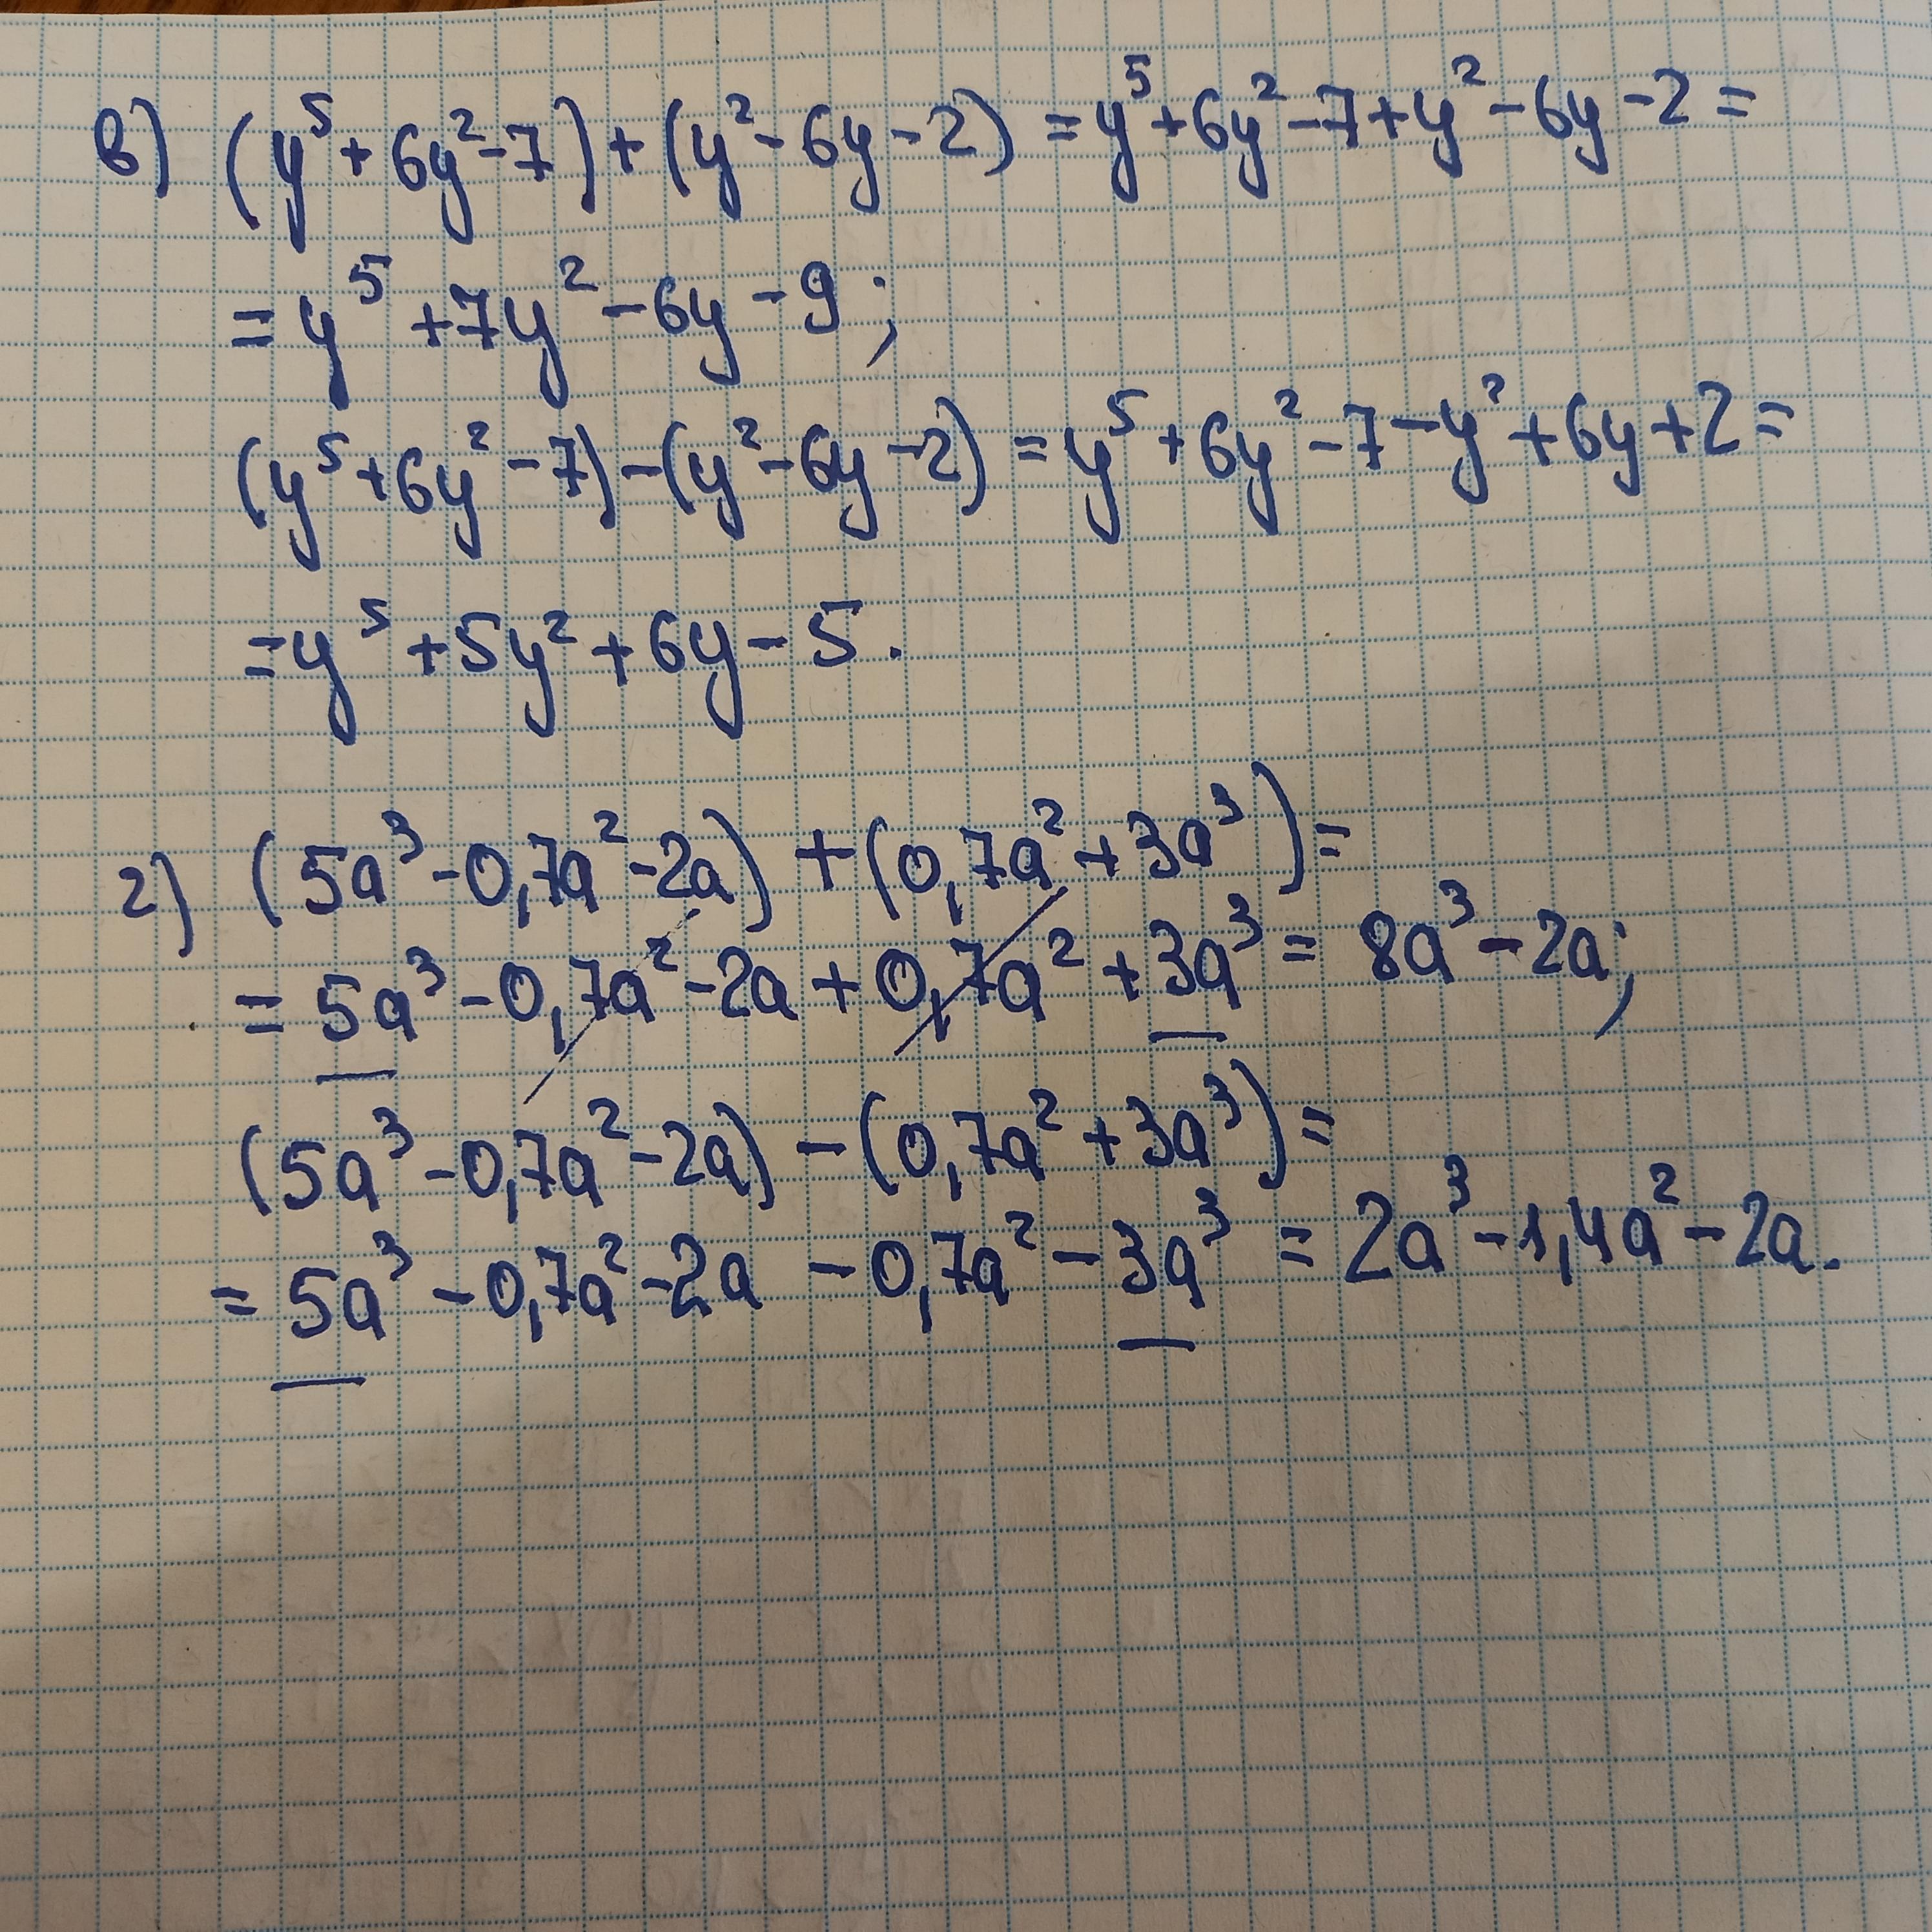 в) (y⁵+6y²-7)+(y²-6y-2)=y⁵+6y²-7+y²-6y-2=
=y⁵+7y²-6y-9;
(y⁵+6y²-7)-(y²-6y-2)=y⁵+6y²-7-y²+6y+2=
=y⁵+5y²+6y-5.
г) (5a³-0,7a²-2a)+(0,7a²+3a³)=
=5a³-0,7a²-2a+0,7a²+3a³=8a³-2a;
(5a³-0,7a²-2a)-(0,7a²+3a³)=
=5a³-0,7a²-2a-0,7a²-3a³=2a³-1,4a²-2a.